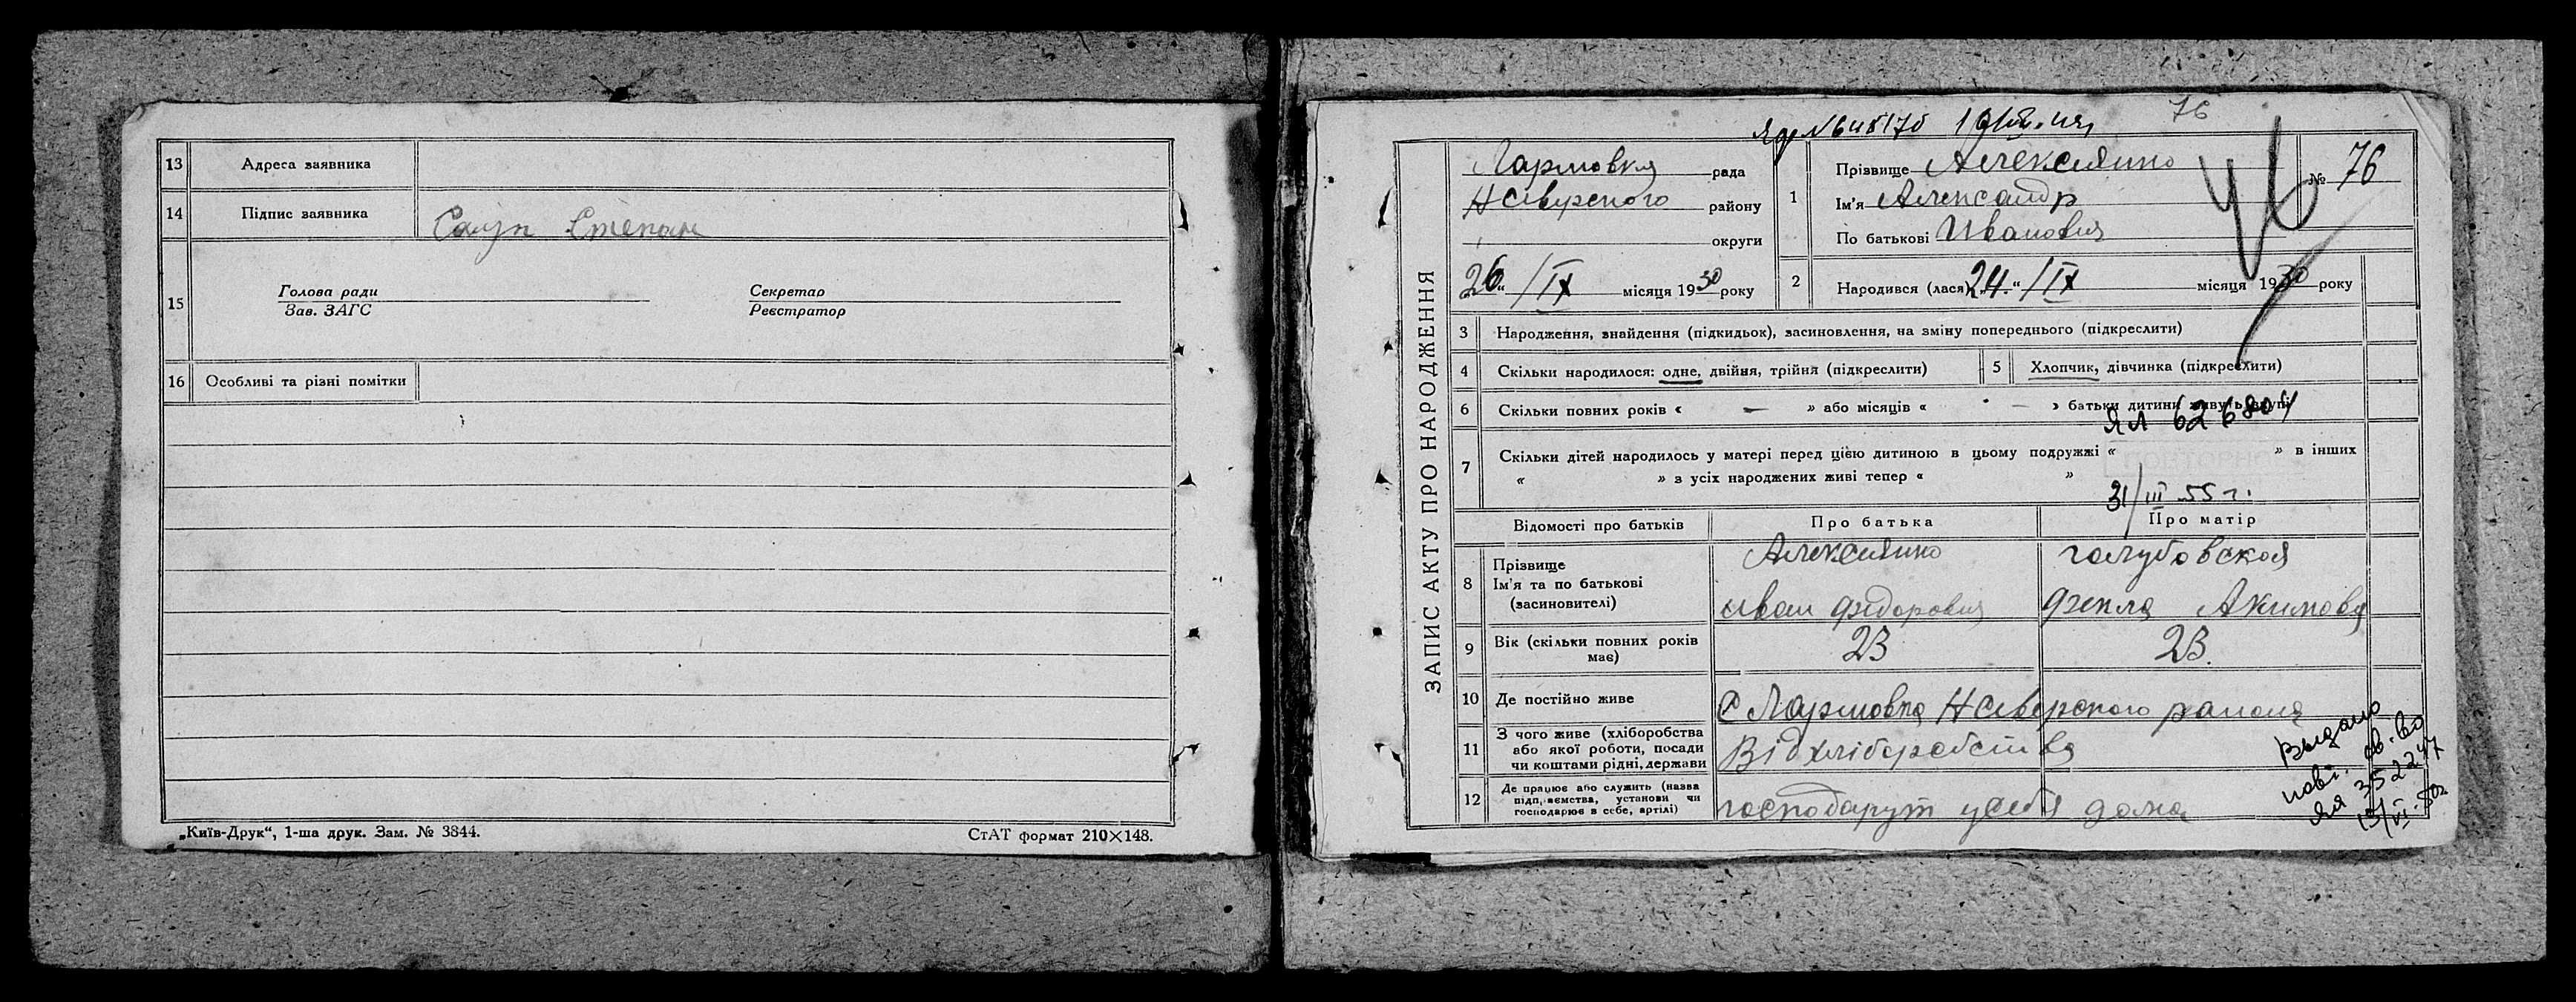 13 Адреса заявника
14 Підпис заявника Сащн Степан
15 Голова ради Секретар
Зав. ЗАГС Реєстратор
16 Особливі та різні помітки
„Київ-Друк“, 1-ша друк. Зам. № 3844. СтАТ формат 210×148.
76
ЗАПИС АКТУ ПРО НАРОДЖЕННЯ
рада
Н Сіверского району
округи
26 “ /IX місяця 1930 року
1 Прізвище Алексиянко № 76
Ім'я Александр
По батькові Иванович
2 Народився (лася) „24.“ /IX місяця 1930 року
3 Народження, знайдення (підкидьок), засиновлення, на зміну попереднього (підкреслити)
4 Скільки народилося: одне, двійня, трійня (підкреслити) 5 Хлопчик, дівчинка (підкреслити)
6 Скільки повних років « — » або місяців « — » батьки дитини живуть вкупі
ЯЛ 626804
7 Скільки дітей народилось у матері перед цією дитиною в цьому подружжі « » в інших
« » з усіх народжених живі тепер « »
31/III 55 г.
Відомості про батьків Про батька Про матір
8 Прізвище Алексиянко Голубовская
Ім'я та по батькові
(засновителі) Иван Федорович Фекла Акимовa
9 Вік (скільки повних років має) 23 23.
10 Де постійно живе С Н Сіверского района
11 З чого живе (хліборобства або якої роботи, посади чи коштами рідні, держави Від хліборобства
12 Де працює або служить (назва підприємства, установи чи господарює в себе, артілі) господарут у себя дома
Выдано
повт. св-во
ЯЯ 352247